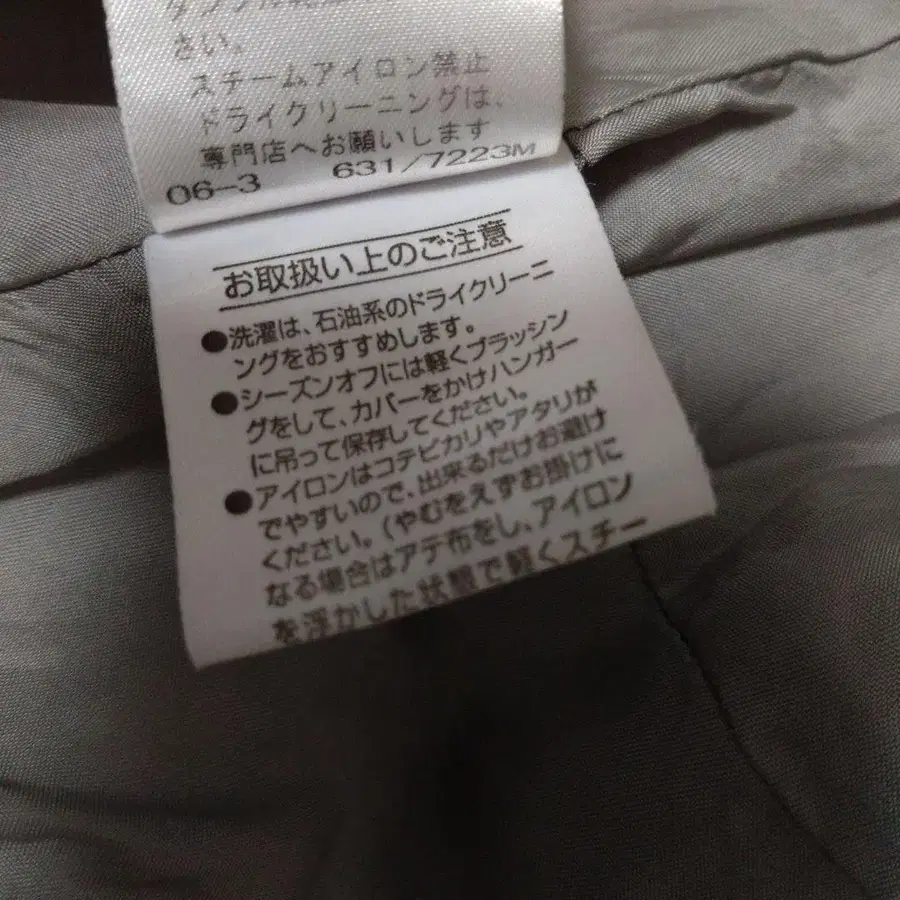 さい。
スチームアイロン禁止
ドライクリーニングは、
専門店へお願いします
06-3 631/7223M
お取扱い上のご注意
●洗濯は、石油系のドライクリーニ
ングをおすすめします。
●シーズンオフには軽くブラッシン
グをして、カバーをかけハンガー
に吊って保存してください。
●アイロンはコテビカリやアタリが
でやすいので、出来るだけお避け
ください。(やむをえずお掛けに
なる場合はアテ布をし、アイロン
を浮かした状態で軽くスチー